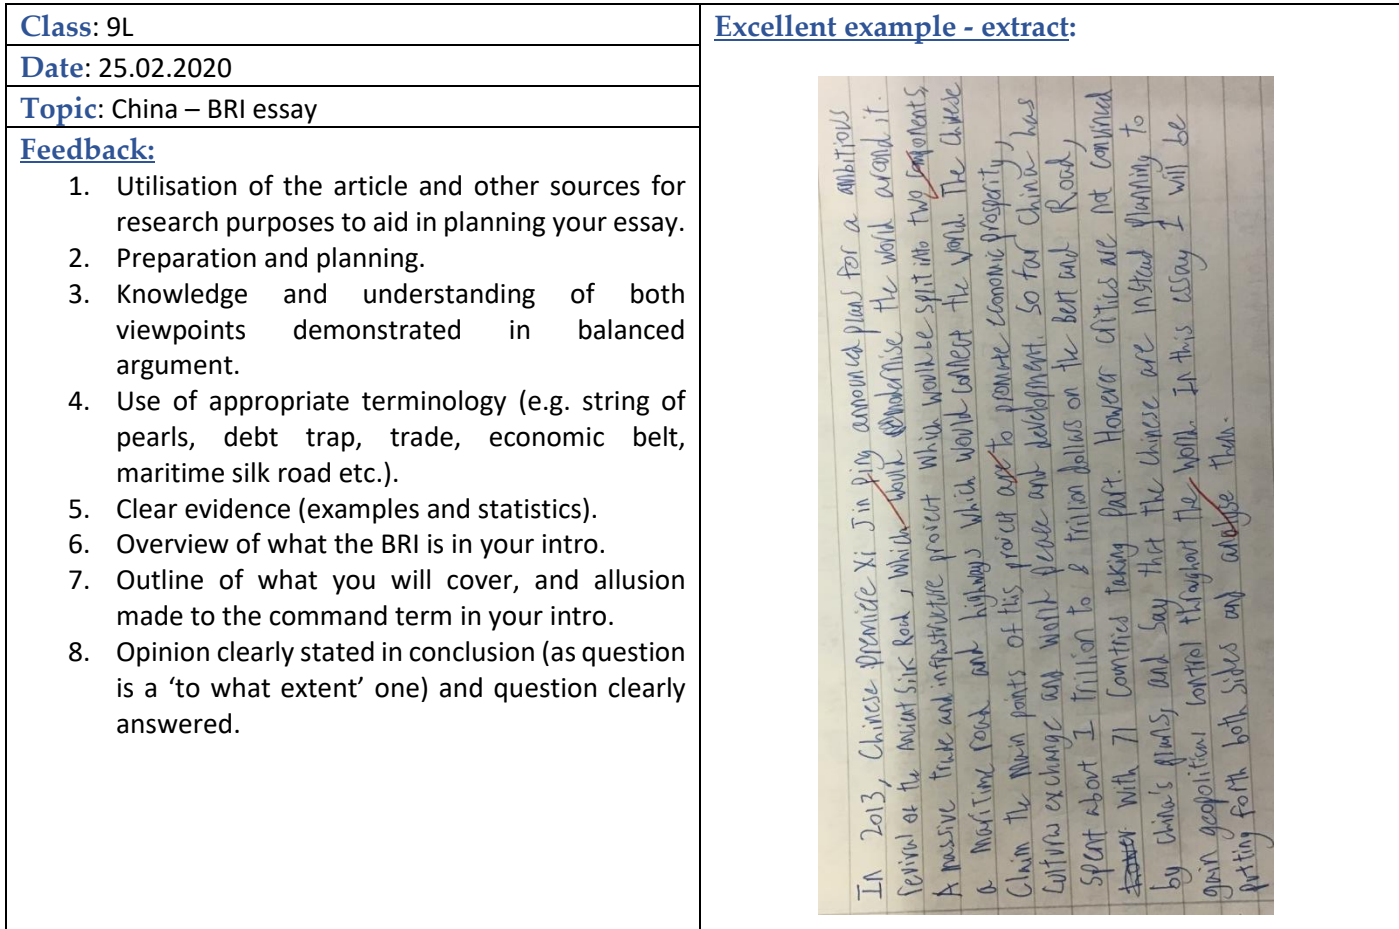 Class: 9L
Date: 25.02.2020
Topic: China – BRI essay
Feedback:
1. Utilisation of the article and other sources for
research purposes to aid in planning your essay.
2. Preparation and planning.
3. Knowledge and understanding of both
viewpoints demonstrated in balanced
argument.
4. Use of appropriate terminology (e.g. string of
pearls, debt trap, trade, economic belt,
maritime silk road etc.).
5. Clear evidence (examples and statistics).
6. Overview of what the BRI is in your intro.
7. Outline of what you will cover, and allusion
made to the command term in your intro.
8. Opinion clearly stated in conclusion (as question
is a ‘to what extent’ one) and question clearly
answered.
Excellent example - extract:
In 2013, Chinese premiere Xi Jin Ping announced plans for a ambitious
revival of the Ancient Silk Road, which would modernise the world around it.
A massive trade and infrastructure project which would be split into two components,
a maritime road and highways which would connect the world. The Chinese
Claim the main points of this project are to promote economic prosperity,
cultural exchange and world peace and development. So far China has
spent about 1 trillion to 8 trillion dollars on the Belt and Road,
with 71 countries taking part. However critics are not convinced
by china's plans, and say that the Chinese are instead planning to
gain geopolitical control throughout the world. In this essay I will be
putting forth both sides and analyse them.